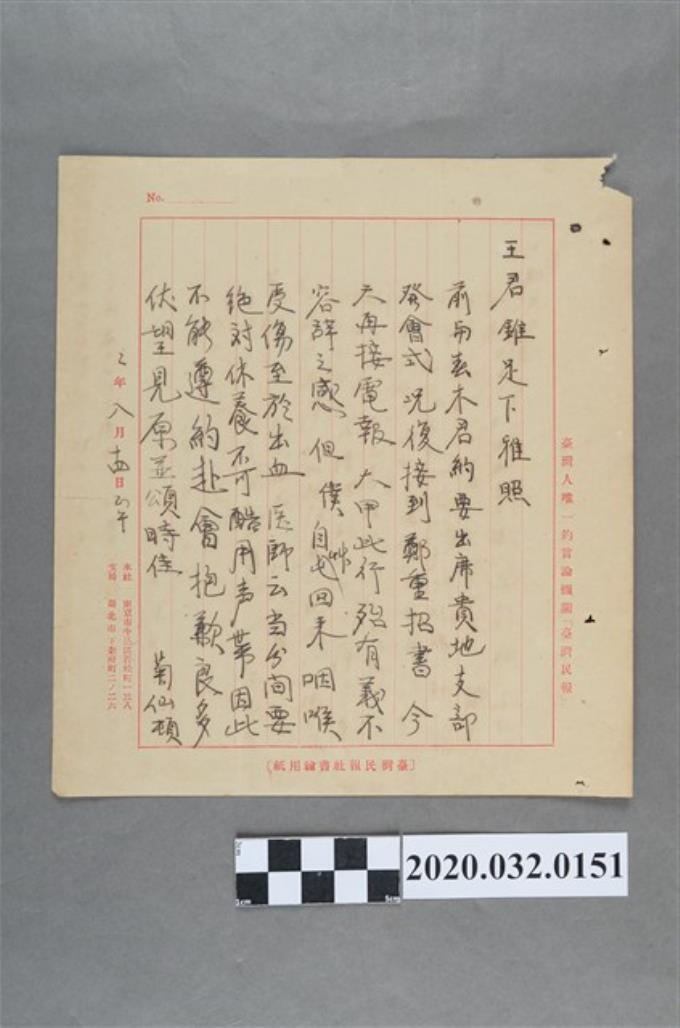 No.
臺灣人唯一的言論機關「臺灣民報」
王君錐足下雅照
前与春木君約要出席貴地支部
發會式 况復接到鄭重招書 今
天再接電報 大甲此行殆有義不
容辞之感 但僕自草屯回来咽喉
受傷至於出血 医師云当分間要
絶対休養不可酷用声帯因此
不能遵約赴會抱歉良多
伏望見原並頌時佳 菊仙頓
年八月 日正午
本社 東京市牛込區若松町一三八
支局 臺北市下奎府町二ノ二六
〔臺灣民報社書翰用紙〕
2020.032.0151
1cm
5cm